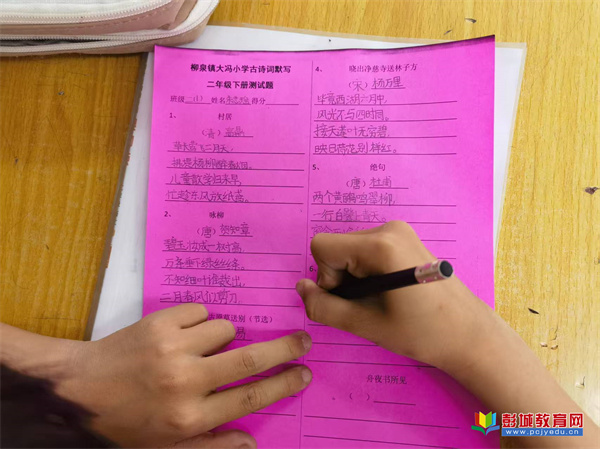 柳泉镇大冯小学古诗词默写
二年级下册测试题
班级 二(1) 姓名 得分
1、 村居
（清）高鼎
草长莺飞二月天，
拂堤杨柳醉春烟。
儿童散学归来早，
忙趁东风放纸鸢。
2、 咏柳
（唐）贺知章
碧玉妆成一树高，
万条垂下绿丝绦。
不知细叶谁裁出，
二月春风似剪刀
草送别（节选）
易
4、 晓出净慈寺送林子方
（宋）杨万里
毕竟西湖六月中，
风光不与四时同。
接天莲叶无穷碧，
映日荷花别样红。
5、 绝句
（唐）杜甫
两个黄鹂鸣翠柳，
一行白鹭上青天。
6、
舟夜书所见
（ ）
彭城教育网
www.pcjyedu.cn